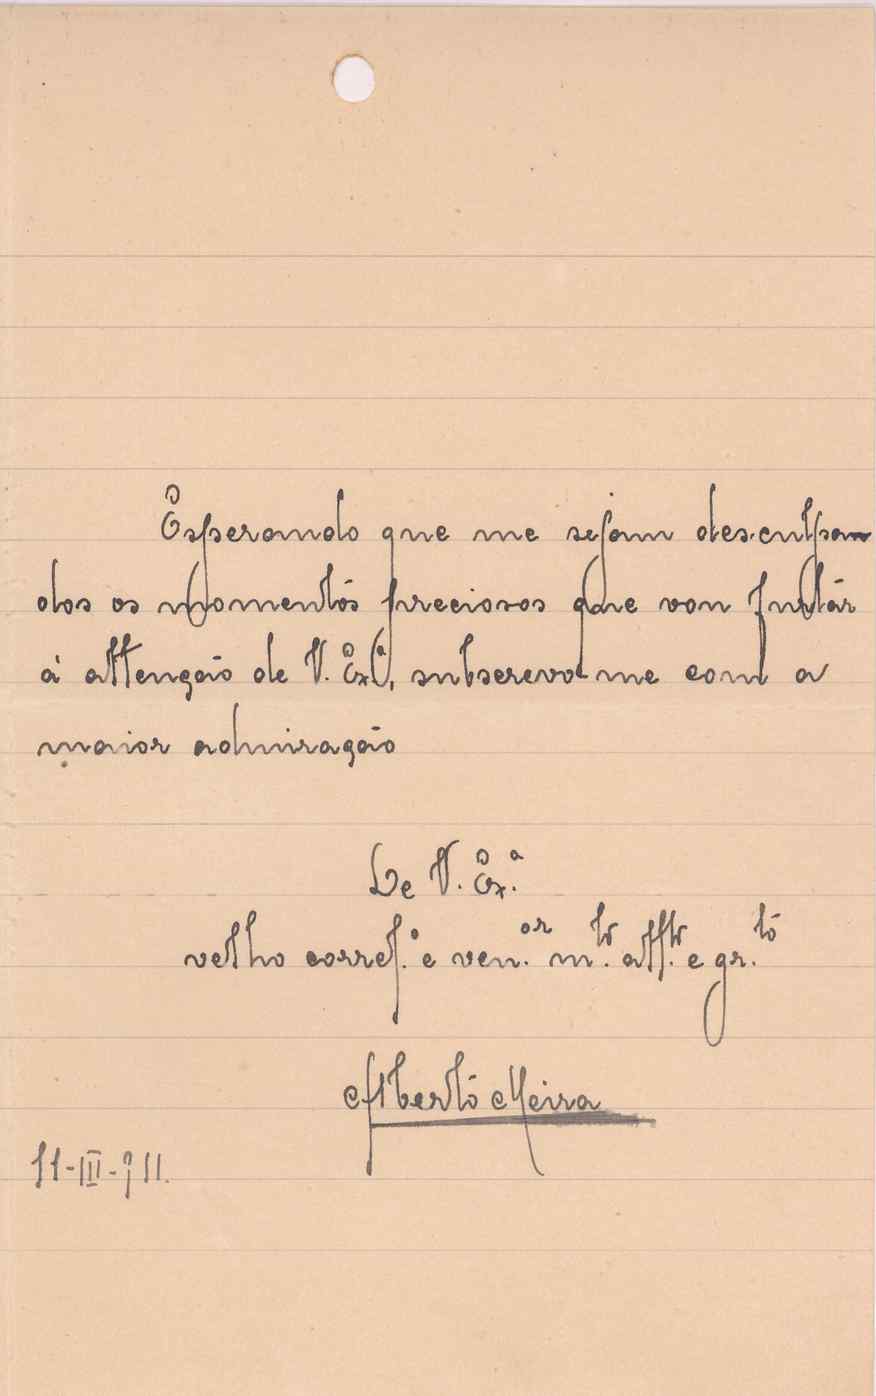 Esperando que me sejam desculpa-
dos os momentos preciosos que vou furtár
á attenção de V. Exª, subscrevo-me com a
maior admiração
De V. Ex.ª
velho corresp.º e ven.or m.to att.to e gr.to
Alberto Meira
11-III-911.